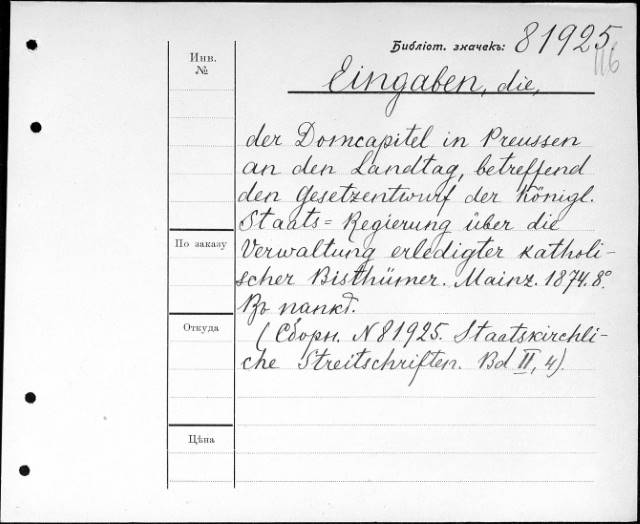 Библіот. значекъ: 81925.
116
Инв.
№
Eingaben, die,
der Domcapitel in Preussen
an den Landtag, betreffend
den Gesetzentwurf der Königl.
Staats=Regierung über die
По заказу
Verwaltung erledigter katholi-
scher Bisthümer. Mainz. 1874. 8º.
Въ папкѣ.
Откуда
(Сборн. N 81925. Staatskirchli-
che Streitschriften. Bd II, 4).
Цѣна